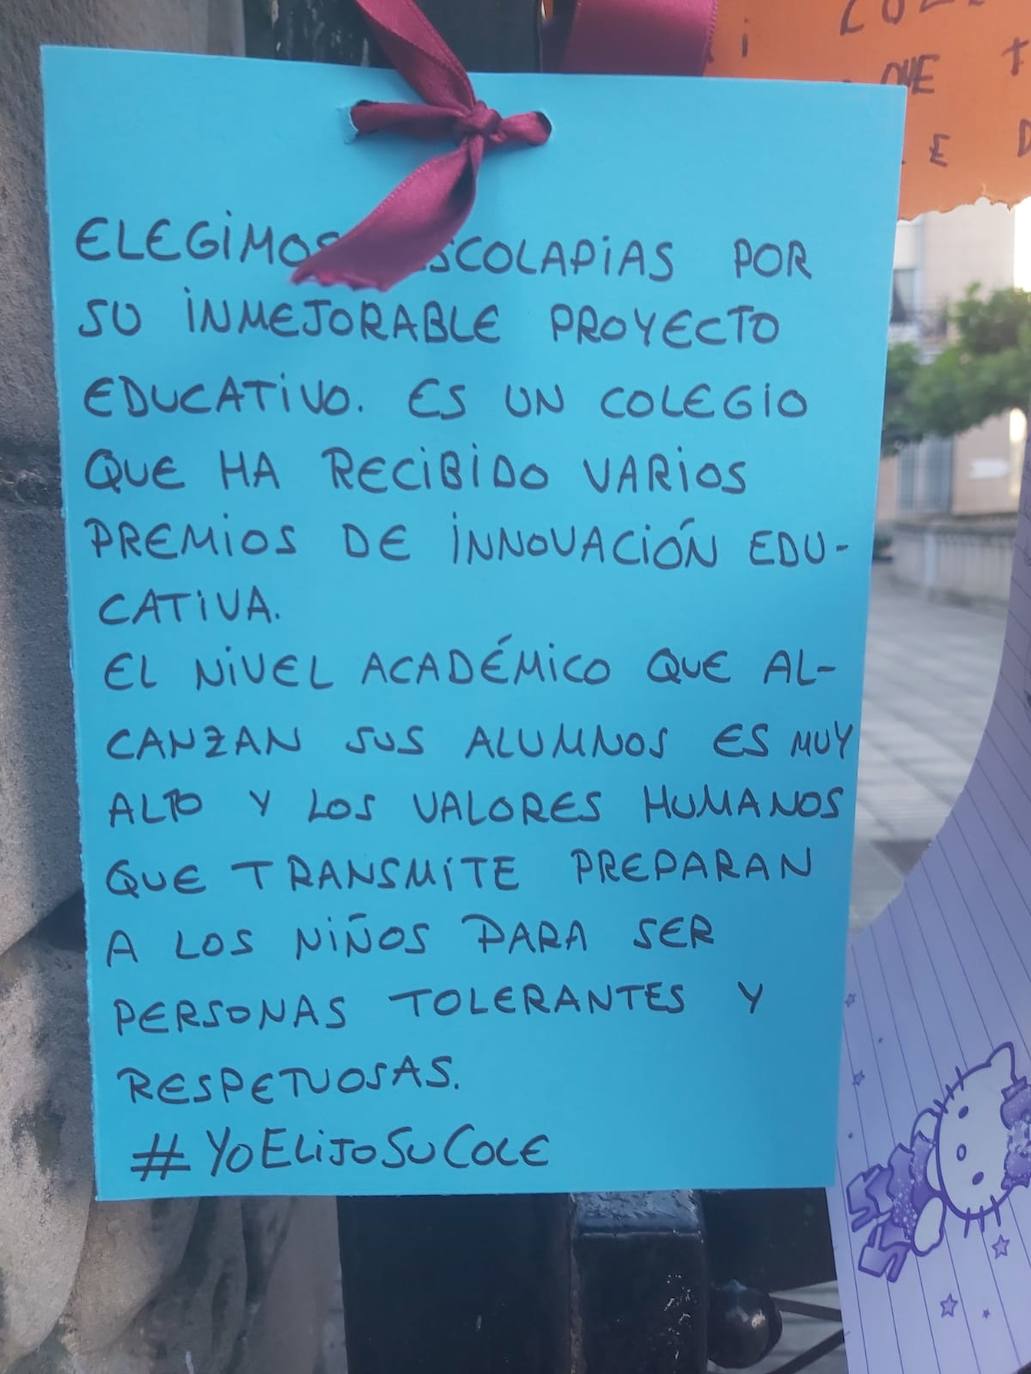 ELEGIMOS ESCOLAPIAS POR
SU INMEJORABLE PROYECTO
EDUCATIVO. ES UN COLEGIO
QUE HA RECIBIDO VARIOS
PREMIOS DE INNOVACIÓN EDU-
CATIVA.
EL NIVEL ACADÉMICO QUE AL-
CANZAN SUS ALUMNOS ES MUY
ALTO Y LOS VALORES HUMANOS
QUE TRANSMITE PREPARAN
A LOS NIÑOS PARA SER
PERSONAS TOLERANTES Y
RESPETUOSAS.
#YOELIJOSUCOLE
QUE